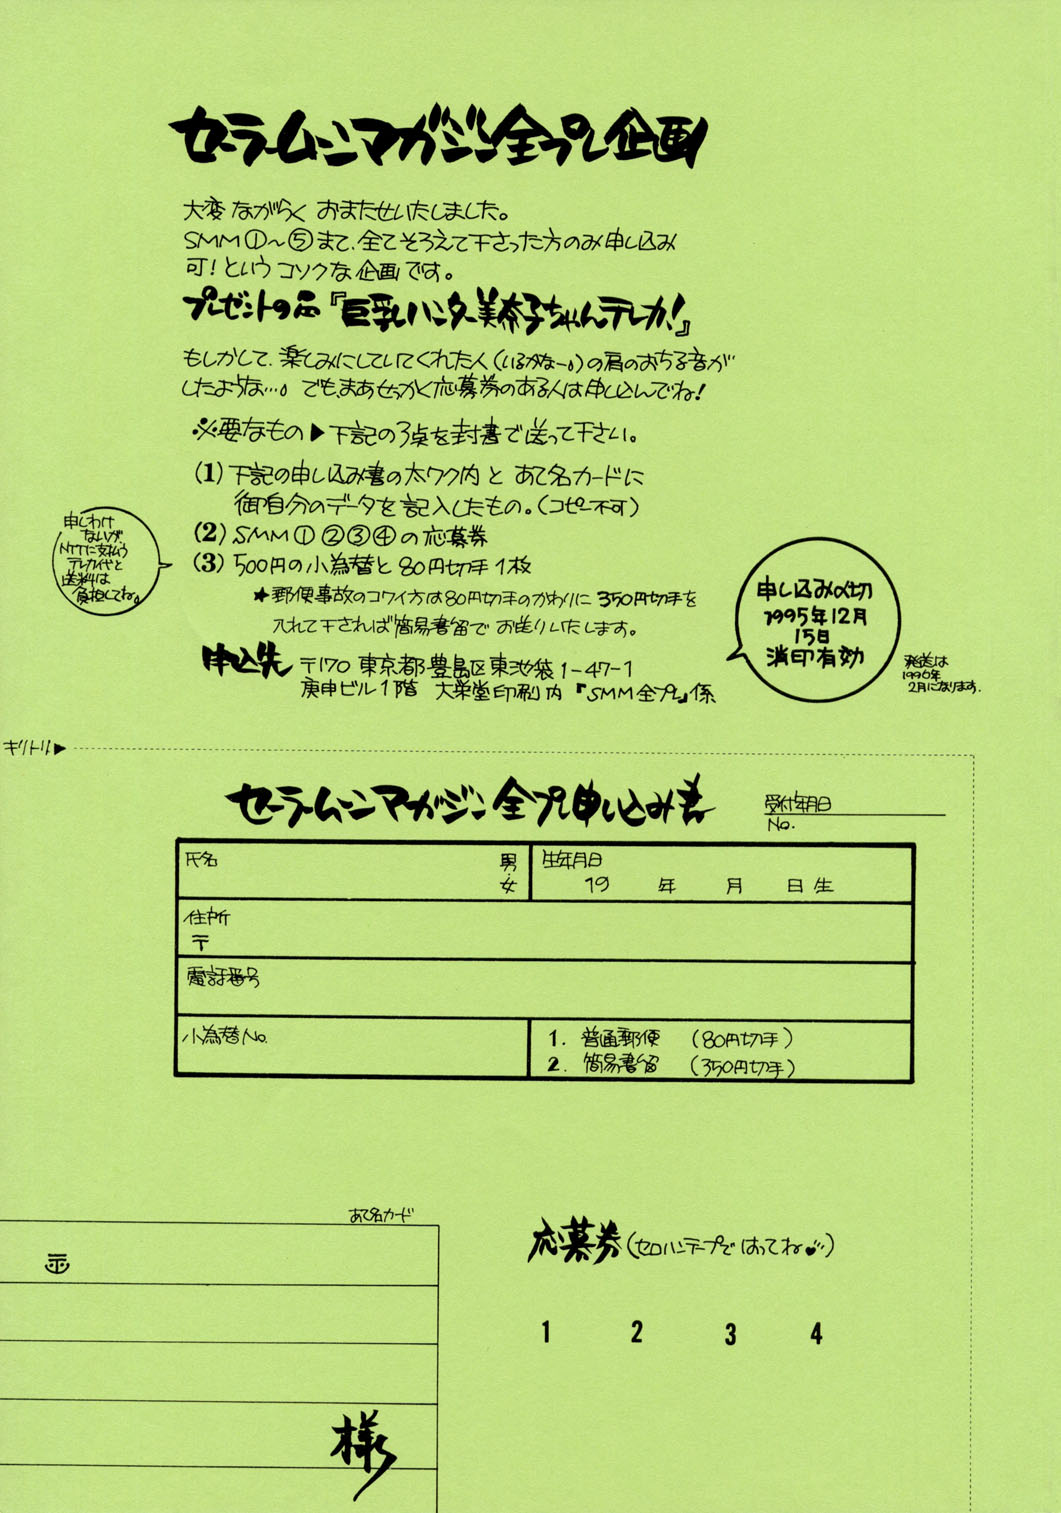 セーラームーンマガジン全プレ企画
大変ながらく おまたせいたしました。
SMM①〜⑤まで、全てそろえて下さった方のみ申し込み
可！というコソクな企画です。
プレゼントの品『巨乳ハンター美奈子ちゃんテレカ！』
もしかして、楽しみにしていてくれた人(いるかなー。)の肩のおちる音が
したような…。でも、まあせっかく応募券のある人は申し込んでね！
※必要なもの▶下記の3点を封書で送って下さい。
(1) 下記の申し込み書の太ワク内と あて名カードに
御自分のデータを記入したもの。(コピー不可)
(2) SMM①②③④の応募券
(3) 500円の小為替と80円切手1枚
★郵便事故のコワイ方は80円切手のかわりに350円切手を
入れて下されば簡易書留でお送りいたします。
申しわけ
ないが
NTTに支払う
テレカ代と
送料は
負担してね。
申し込み〆切
1995年12月
15日
消印有効
発送は
1996年
2月になります。
申込先 〒170 東京都豊島区東池袋1-47-1
庚申ビル1階 大栄堂印刷内『SMM全プレ』係
キリトリ▶
セーラームーンマガジン全プレ申し込み書
受付年月日
No.
氏名 男・女
生年月日
19 年 月 日生
住所
〒
電話番号
小為替No.
1. 普通郵便 (80円切手)
2. 簡易書留 (350円切手)
あて名カード
〒
様
応募券(セロハンテープではってね♥)
1 2 3 4